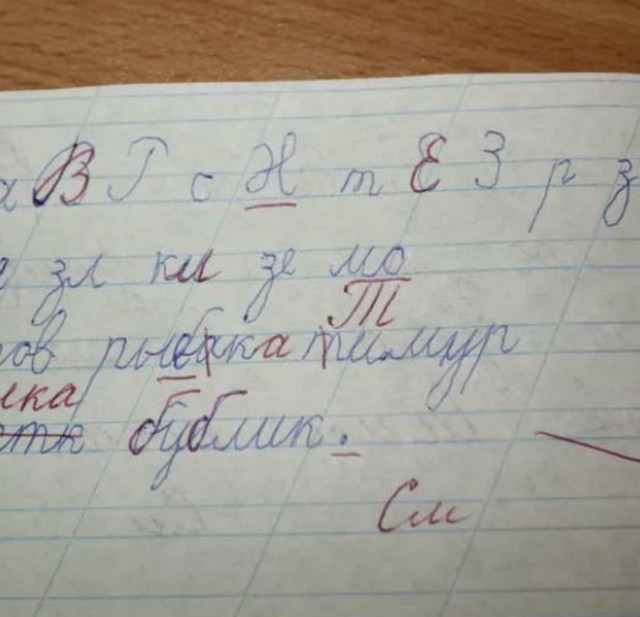 В Г с Н т Е З р з
зл ки зе мо
Т
ов рыбака тимур
ика
бублик.
См